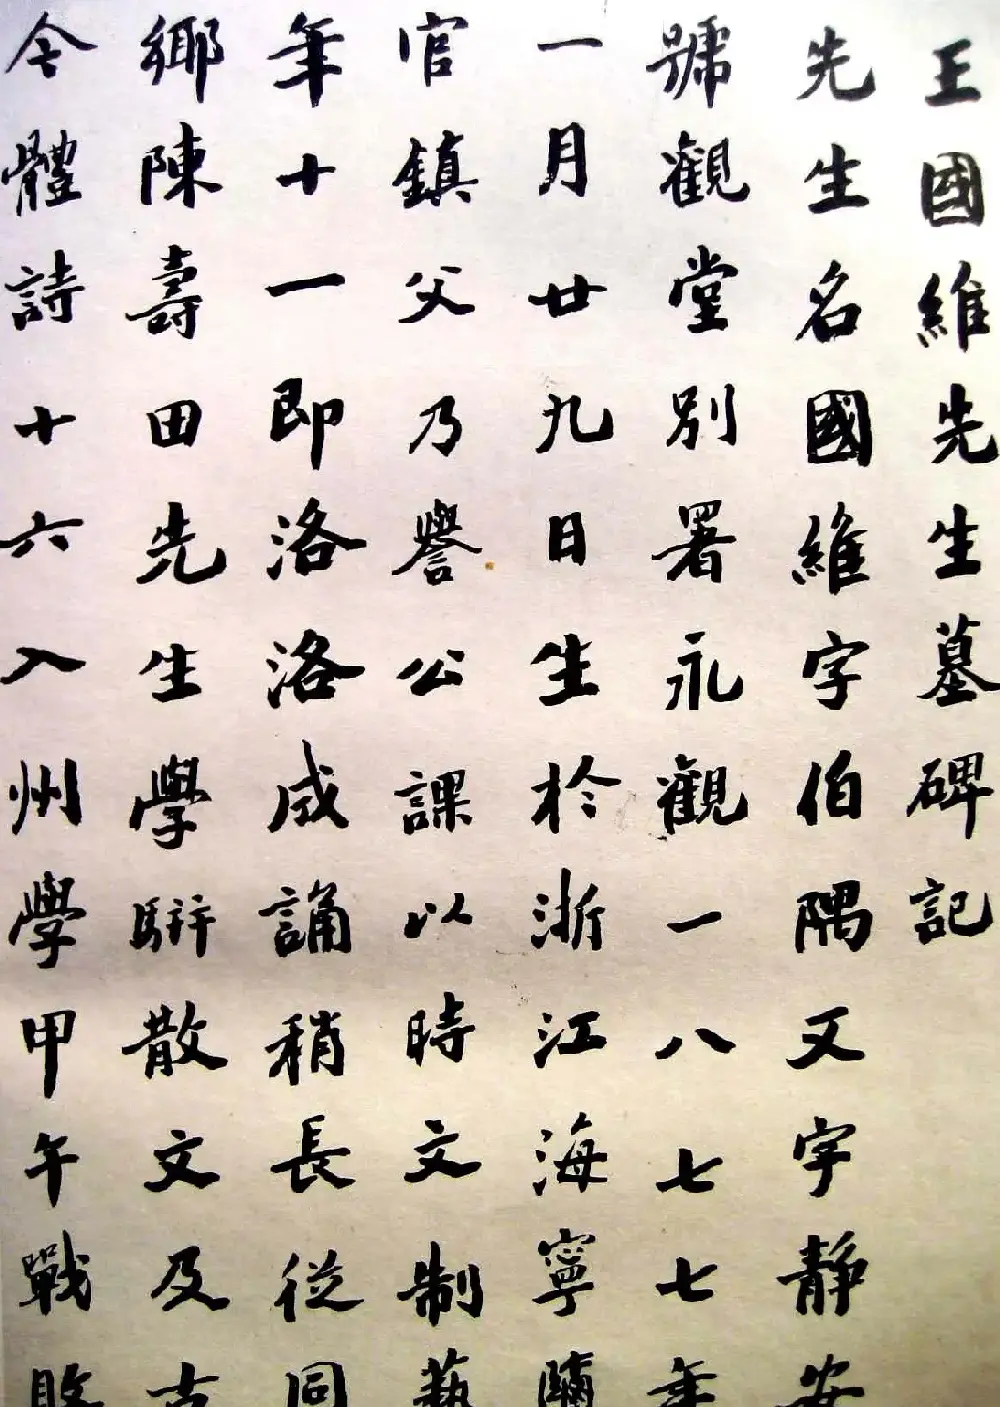 王國維先生墓碑記
先生名國維字伯隅又字靜安
號觀堂別署永觀一八七七年
一月廿九日生於浙江海寧鹽
官鎮父乃譽公課以時文制藝
年十一即洛洛成誦稍長從同
鄉陳壽田先生學駢散文及古
今體詩十六入州學甲午戰敗